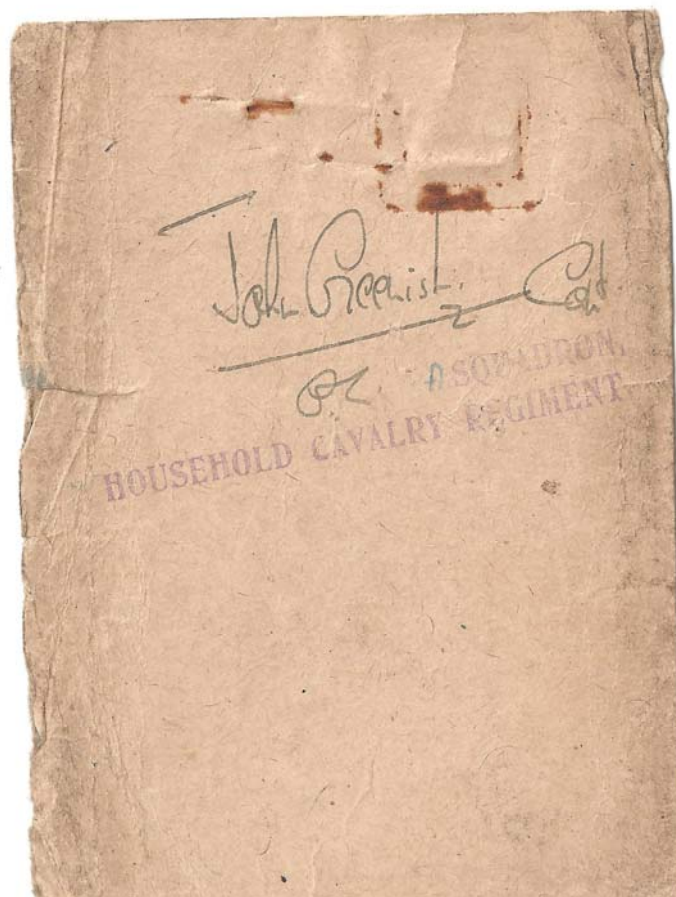 John Greenish. Capt.
O.C. A SQUADRON,
HOUSEHOLD CAVALRY REGIMENT